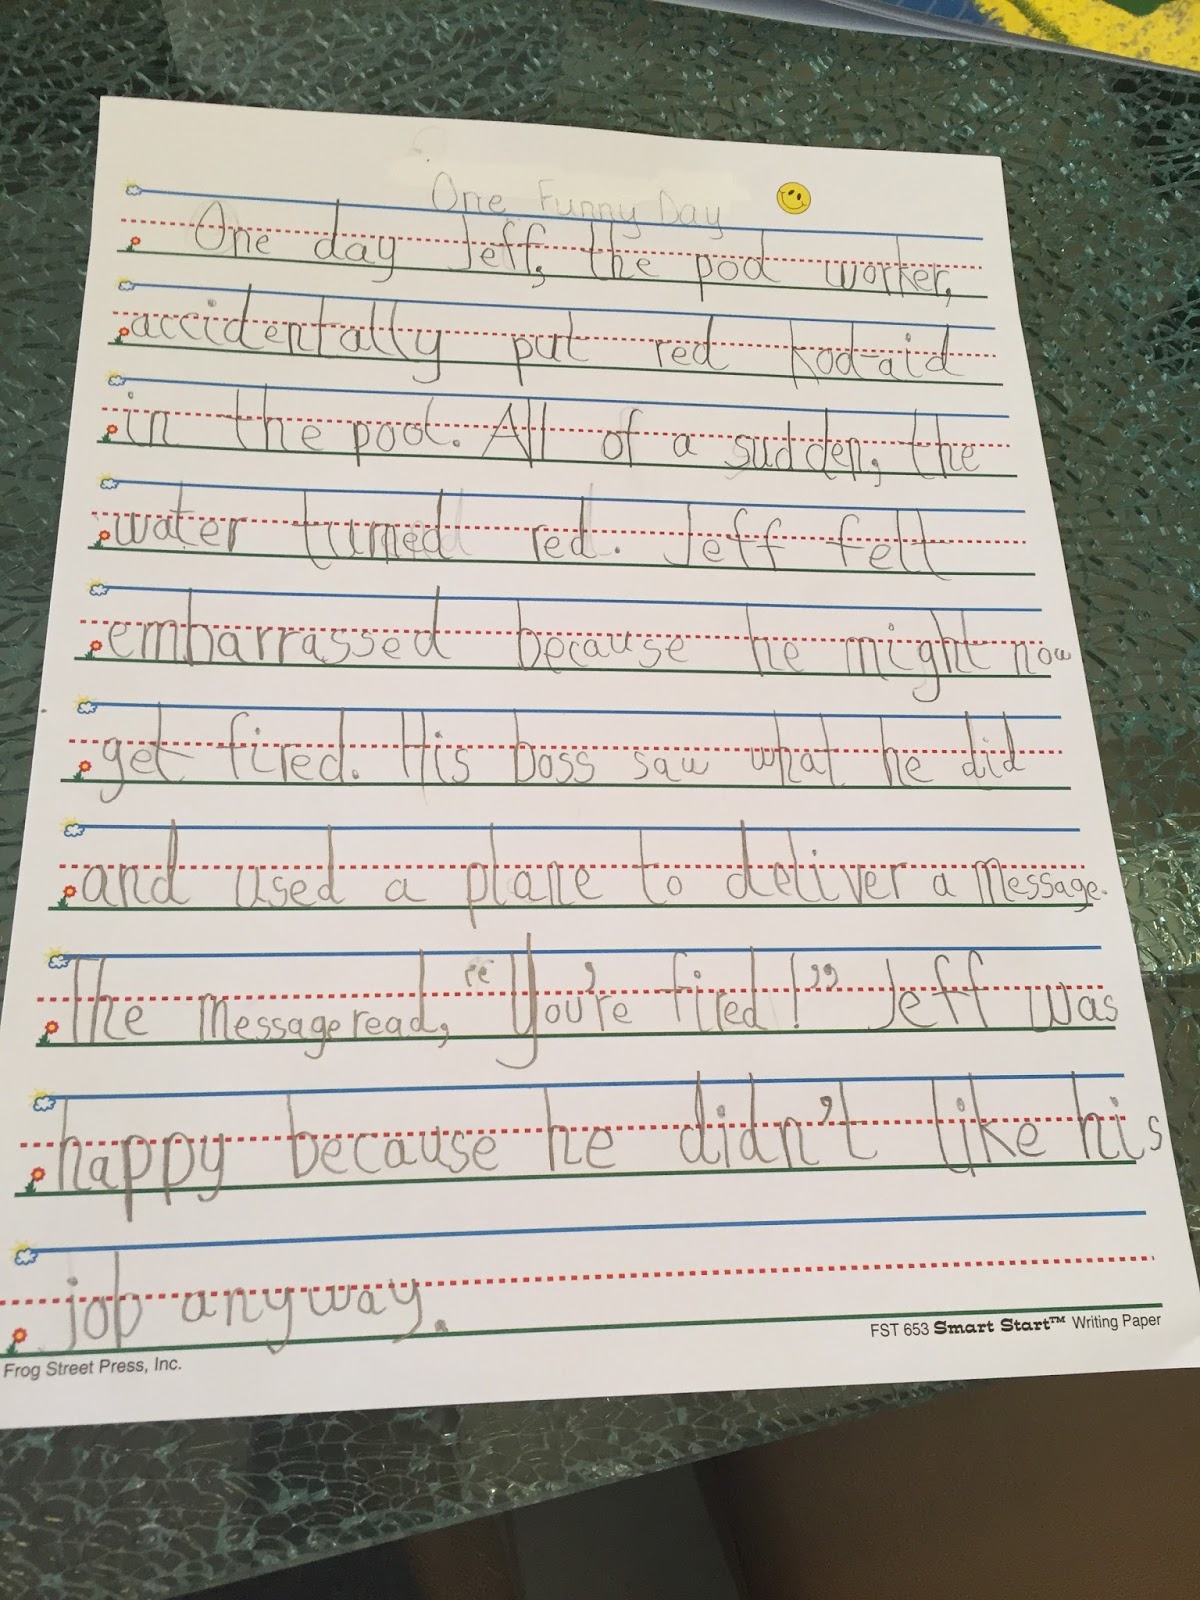 One Funny Day
One day Jeff, the pool worker,
accidentally put red kool-aid
in the pool. All of a sudden, the
water turned red. Jeff felt
embarrassed because he might now
get fired. His boss saw what he did
and used a plane to deliver a message.
The message read, “You're fired!” Jeff was
happy because he didn't like his
job anyway.
FST 653 Smart Start™ Writing Paper
Frog Street Press, Inc.